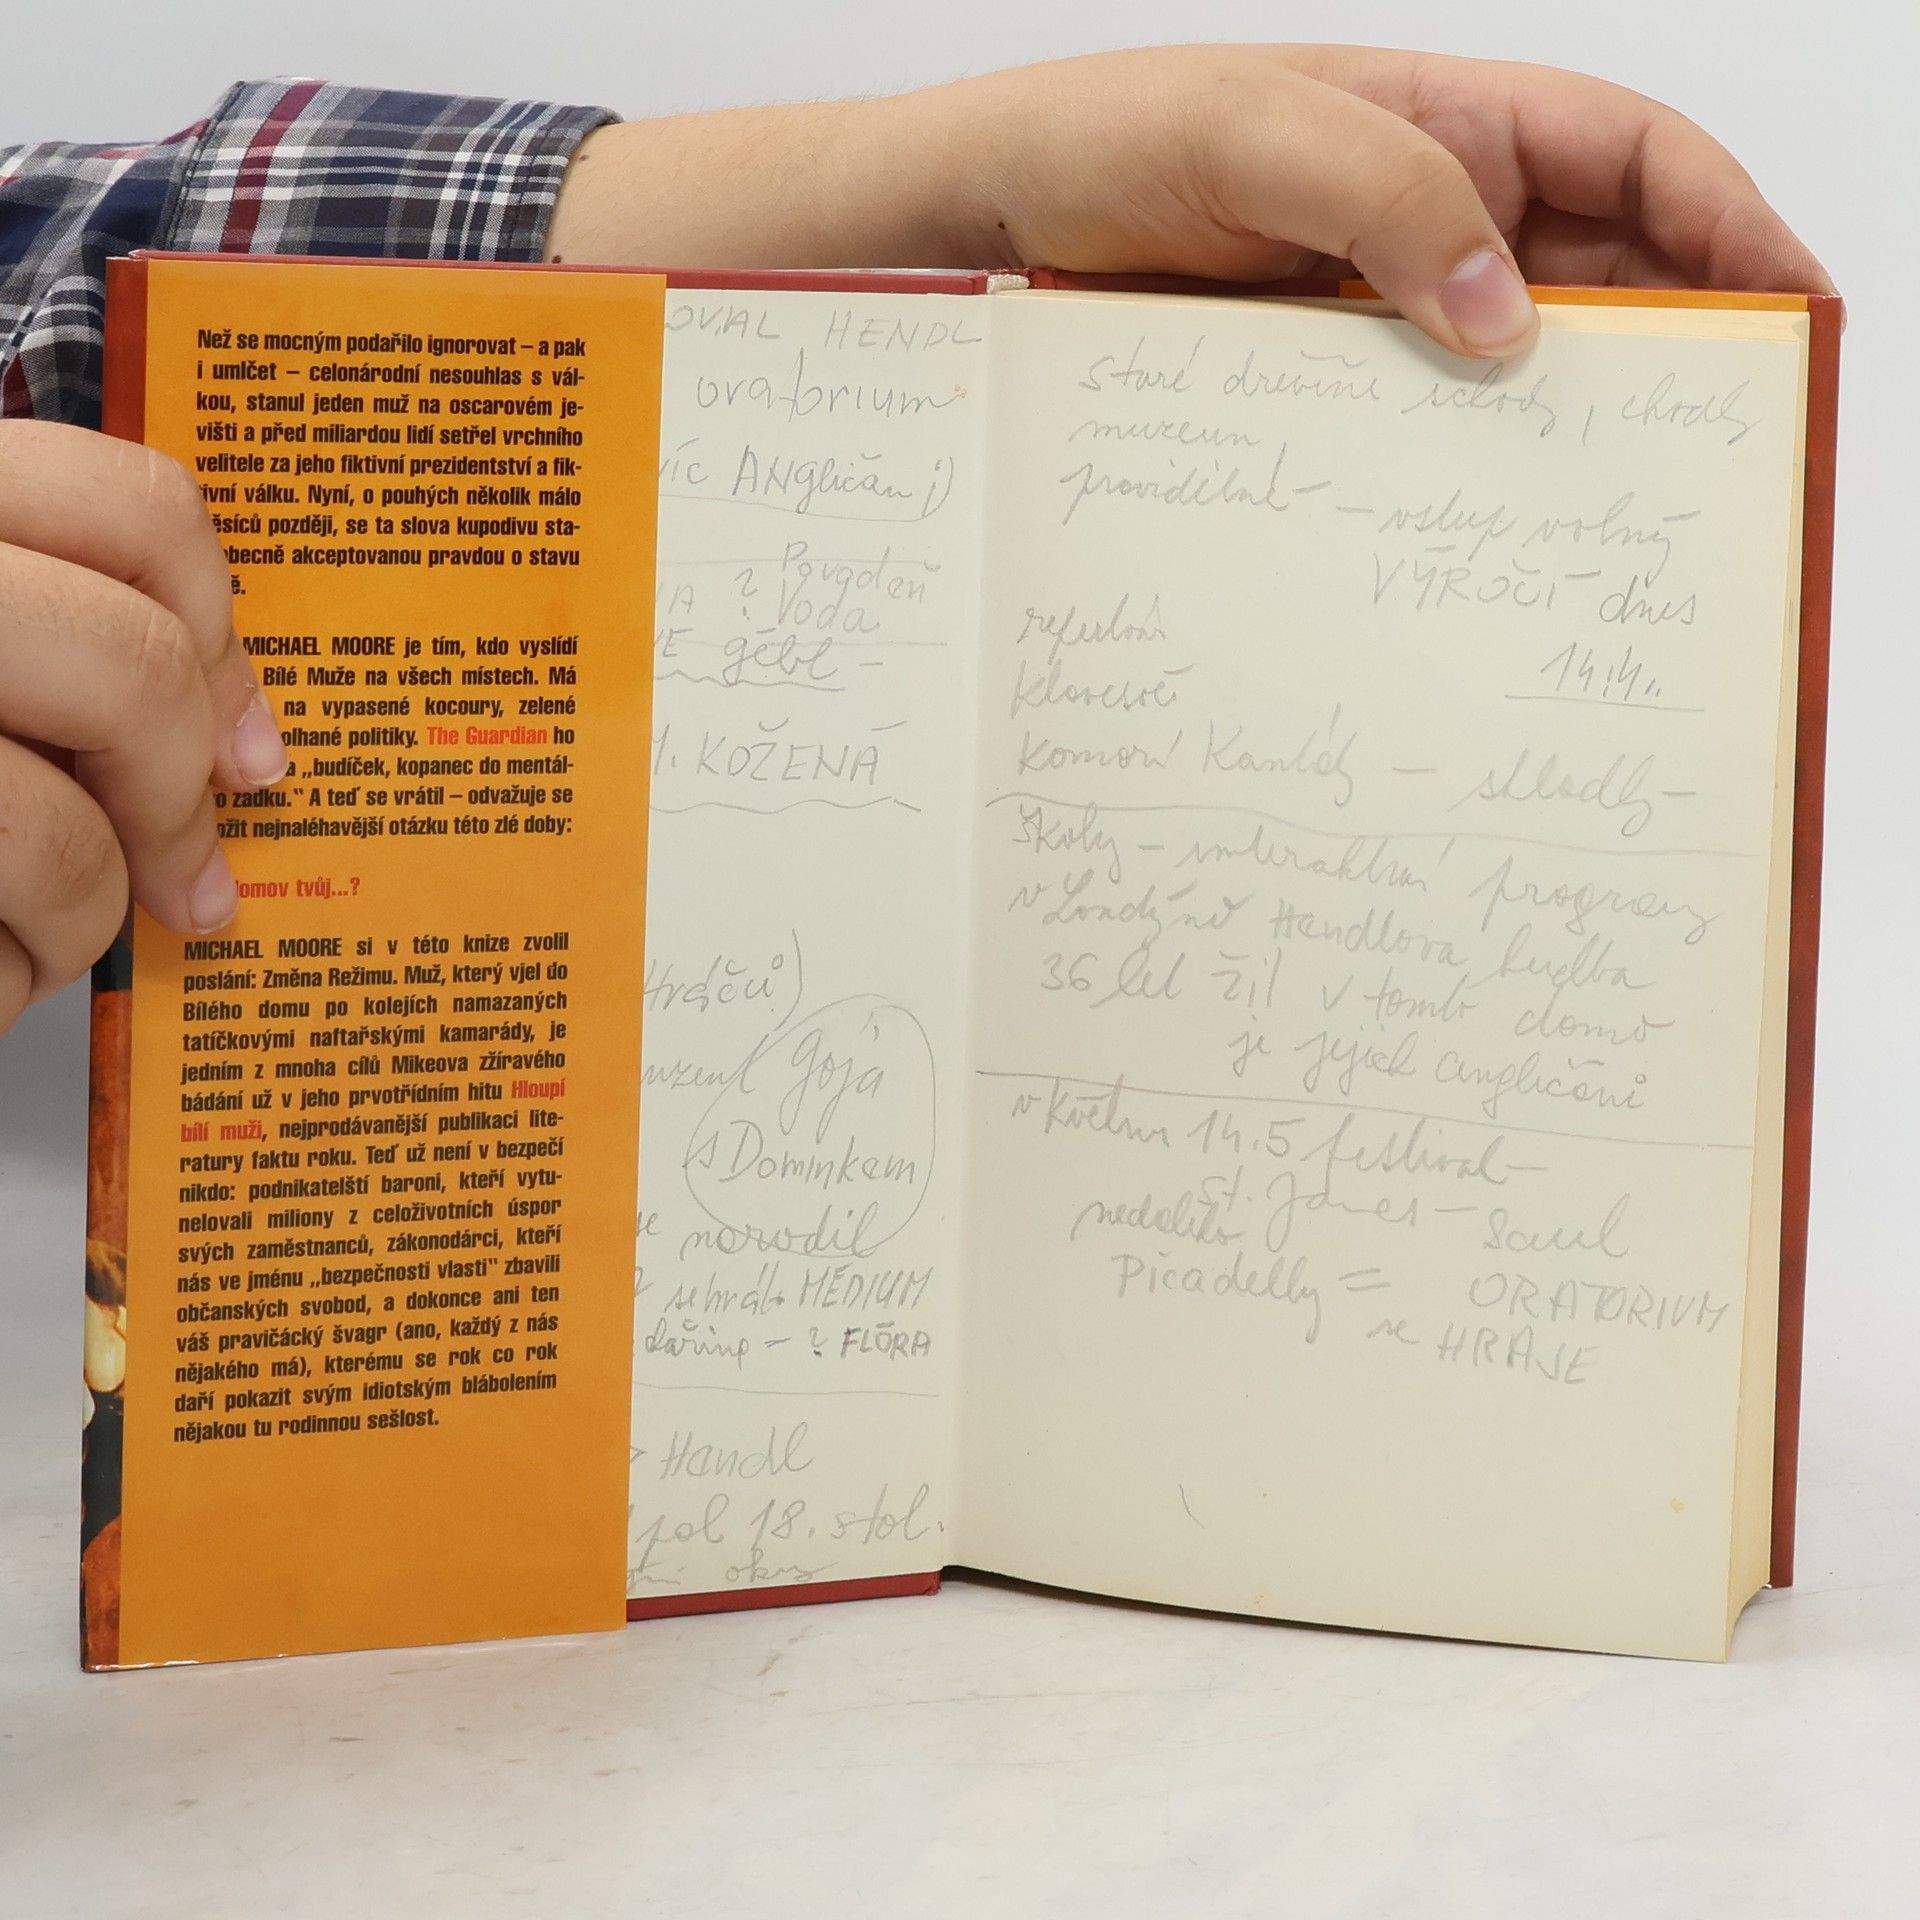 Než se mocným podařilo ignorovat – a pak
i umlčet – celonárodní nesouhlas s vál-
kou, stanul jeden muž na oscarovém je-
višti a před miliardou lidí setřel vrchního
velitele za jeho fiktivní prezidentství a fik-
ivní válku. Nyní, o pouhých několik málo
ěsíců později, se ta slova kupodivu sta-
obecně akceptovanou pravdou o stavu
ě.
MICHAEL MOORE je tím, kdo vyslídí
Bílé Muže na všech místech. Má
na vypasené kocoury, zelené
olhané politiky. The Guardian ho
a „budíček, kopanec do mentál-
o zadku." A teď se vrátil – odvažuje se
ožit nejnaléhavější otázku této zlé doby:
domov tvůj...?
MICHAEL MOORE si v této knize zvolil
poslání: Změna Režimu. Muž, který vjel do
Bílého domu po kolejích namazaných
tatíčkovými naftařskými kamarády, je
jedním z mnoha cílů Mikeova zžíravého
bádání už v jeho prvotřídním hitu Hloupí
bílí muži, nejprodávanější publikaci lite-
ratury faktu roku. Teď už není v bezpečí
nikdo: podnikatelští baroni, kteří vytu-
nelovali miliony z celoživotních úspor
svých zaměstnanců, zákonodárci, kteří
nás ve jménu „bezpečnosti vlasti" zbavili
občanských svobod, a dokonce ani ten
váš pravičácký švagr (ano, každý z nás
nějakého má), kterému se rok co rok
daří pokazit svým idiotským blábolením
nějakou tu rodinnou sešlost.
OVAL HENDL
oratorium
víc ANgličan ;)
? Povodeň
Voda
gébl –
M. KOŽENÁ
Hráčů)
Gója
s Dominkem
se narodil
sehrál MÉDIUM
= ? FLÓRA
> Handl
pol 18. stol.
staré dřevěné schody, chodby
muzeum,
pravidelné – vstup volný
VÝROČÍ dnes
14.4..
Komorní Kantáty – skladby –
Školy – interaktivní programy
v Londýně Handlova hudba
36 let žil v tomto domě
je jejich angličani
v Květnu 14.5 festival –
St. James – Saul
nedaleko
Picadelly = ORATORIUM
se HRAJE